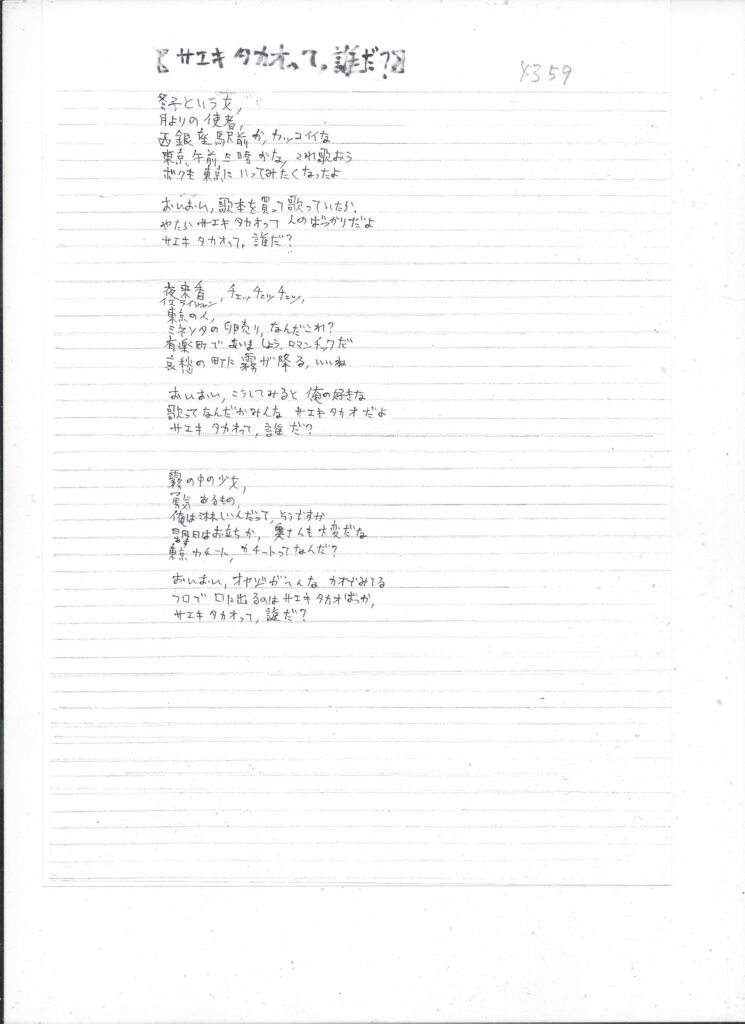 【サエキタカオって,誰だ?】
4359
冬子という女,
月よりの使者,
西銀座駅前か,カッコイイな
東京,午前三時かな,これ歌おう
ボクも東京にいってみたくなったよ
おいおい,歌本を買って歌っていたら,
やたらサエキタカオって人のばっかりだよ
サエキタカオって,誰だ?
夜来香,チェッチェッチェッ,
イエライシャン
東京の人,
ミネソタの卵売り,なんだこれ?
有楽町であいましょう,ロマンチックだ
哀愁の町に霧が降る,いいね
おいおい,こうしてみると俺の好きな
歌ってなんだかみんなサエキタカオだよ
サエキタカオって,誰だ?
霧の中の少女,
勇気あるもの,
俺は淋しいんだって,そうですか
明日はお立ちか,奥さんも大変だな
東京カチート,カチートってなんだ?
おいおい,オヤジがへんなカオでみてる
フロで口に出るのはサエキタカオばっか,
サエキタカオって,誰だ?